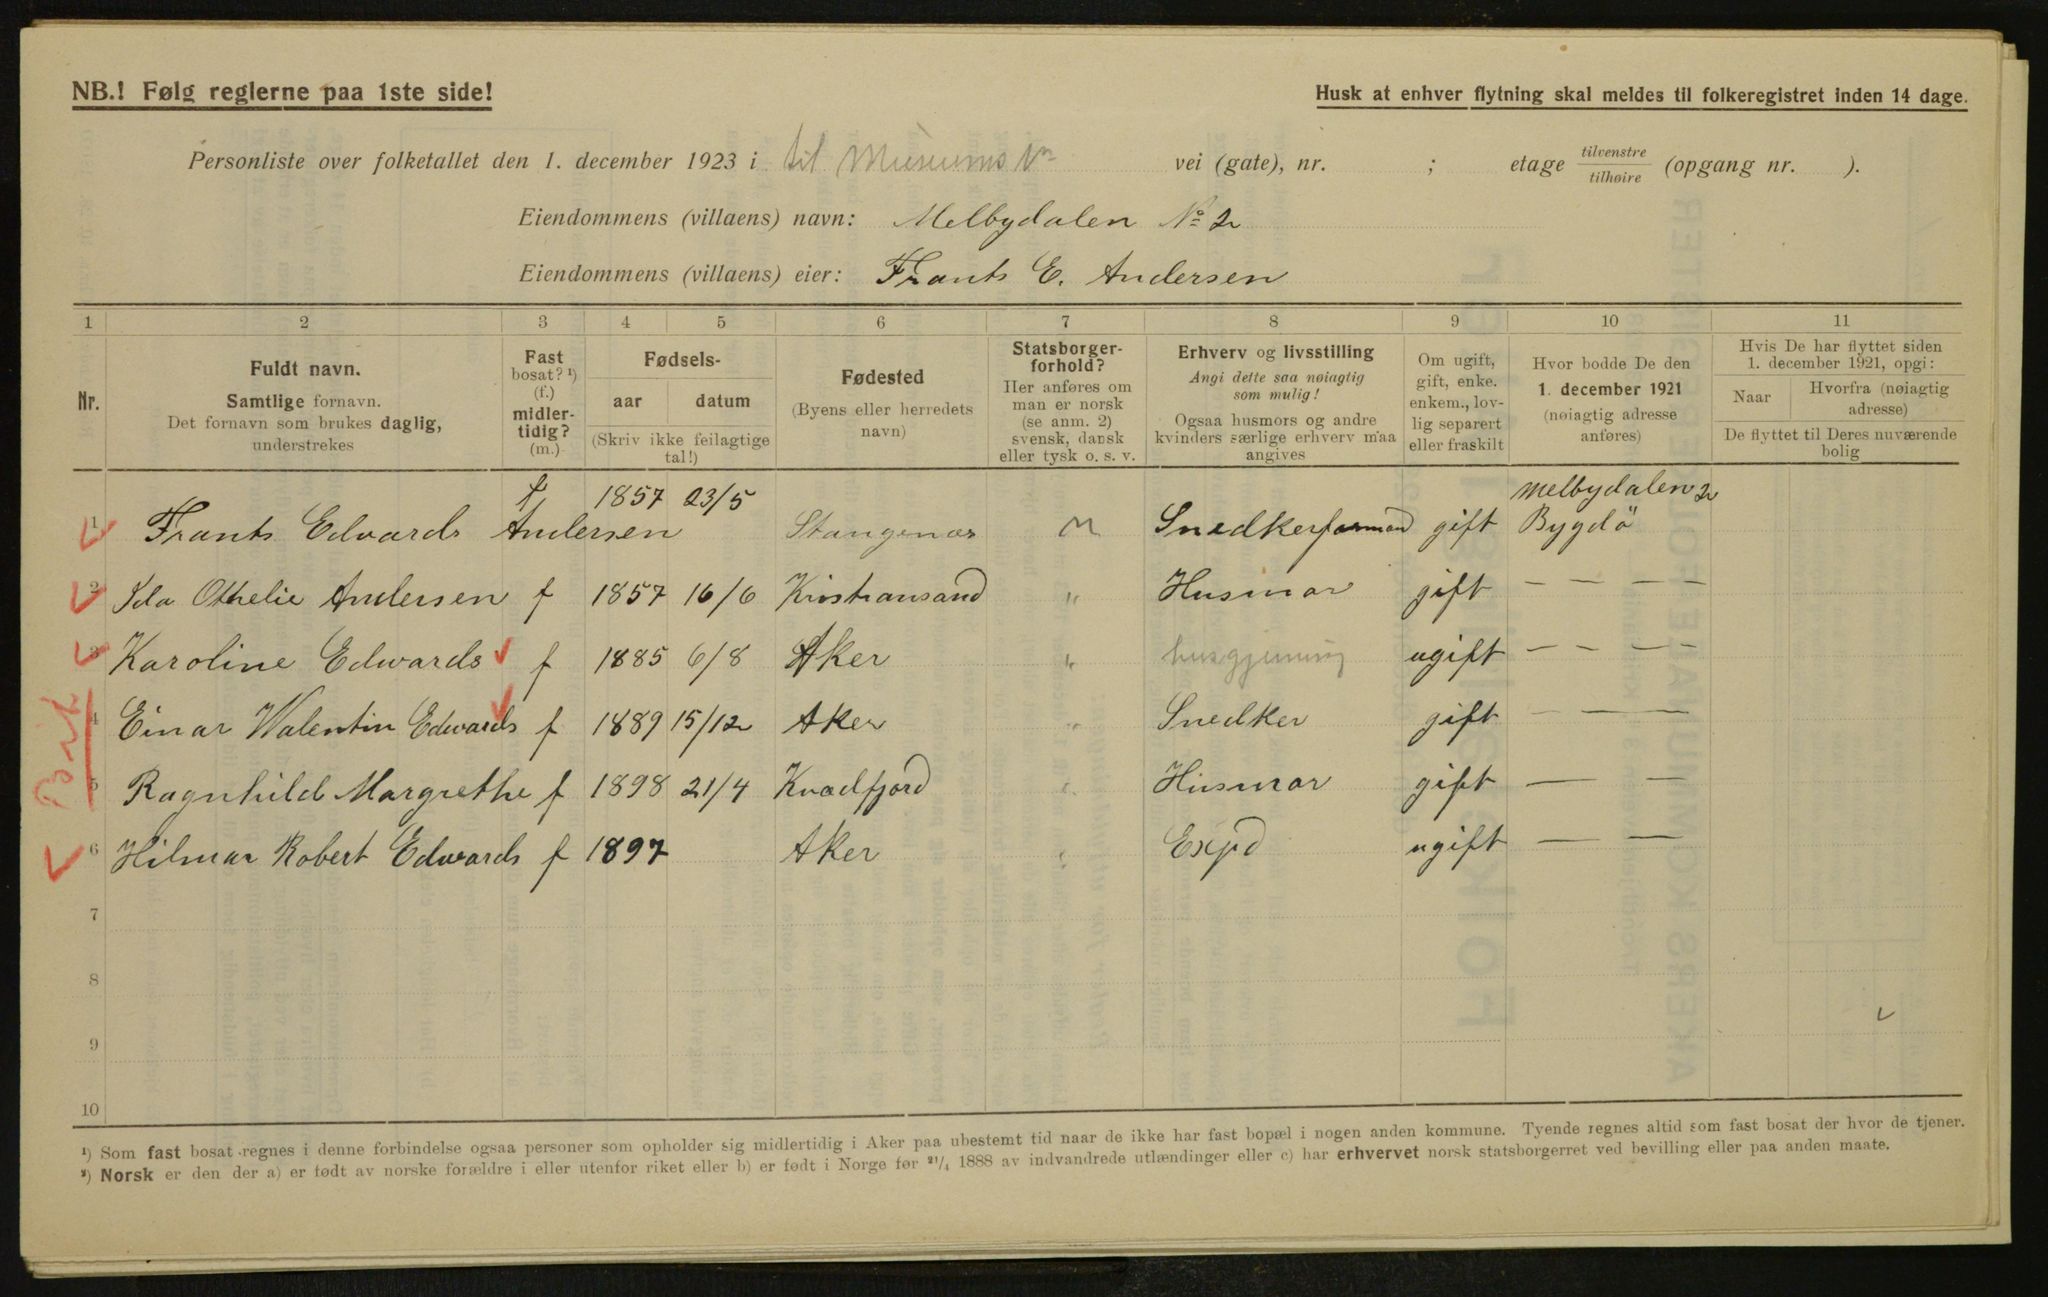 NB.! Følg reglerne paa 1ste side!
Husk at enhver flytning skal meldes til folkeregistret inden 14 dage.
Personliste over folketallet den 1. december 1923 i til Museums vn vei (gate), nr. ; etage tilvenstre tilhøire (opgang nr. ).
Eiendommens (villaens) navn: Melbydalen No 2
Eiendommens (villaens) eier: Frants E. Andersen
1 2 3 4 5 6 7 8 9 10 11
Nr.
Fuldt navn.
Samtlige fornavn.
Det fornavn som brukes daglig,
understrekes
Fast
bosat? ¹)
(f.)
midler-
tidig?
(m.)
Fødsels-
aar datum
(Skriv ikke feilagtige
tal!)
Fødested
(Byens eller herredets
navn)
Statsborger-
forhold?
Her anføres om
man er norsk
(se anm. 2)
svensk, dansk
eller tysk o. s. v.
Erhverv og livsstilling
Angi dette saa nøiagtig
som mulig!
Ogsaa husmors og andre
kvinders særlige erhverv maa
angives
Om ugift,
gift, enke.
enkem., lov-
lig separert
eller fraskilt
Hvor bodde De den
1. december 1921
(nøiagtig adresse
anføres)
Hvis De har flyttet siden
1. december 1921, opgi:
Naar
Hvorfra (nøiagtig
adresse)
De flyttet til Deres nuværende
bolig
f 1857 23/5 Melbydalen 2
1 Frants Edvards Andersen Stangenæs N Snedkerformand gift Bygdö
2 Ida Othelie Andersen f 1857 16/6 Kristiansand " Husmor gift — — — —
3 Karoline Edwards f 1885 6/8 Aker " husgjerning ugift — — — —
4 Einar Walentin Edwards f 1889 15/12 Aker " Snedker gift — — —
5 Ragnhild Margrethe f 1898 21/4 Kvædfjord " Husmor gift — —
6 Hilmar Robert Edwards f 1897 Aker " Expd ugift — —
7
8
9
10
¹) Som fast bosat regnes i denne forbindelse ogsaa personer som opholder sig midlertidig i Aker paa ubestemt tid naar de ikke har fast bopæl i nogen anden kommune. Tyende regnes altid som fast bosat der hvor de tjener.
²) Norsk er den der a) er født av norske forældre i eller utenfor riket eller b) er født i Norge før ²¹/₄ 1888 av indvandrede utlændinger eller c) har erhvervet norsk statsborgerret ved bevilling eller paa anden maate.